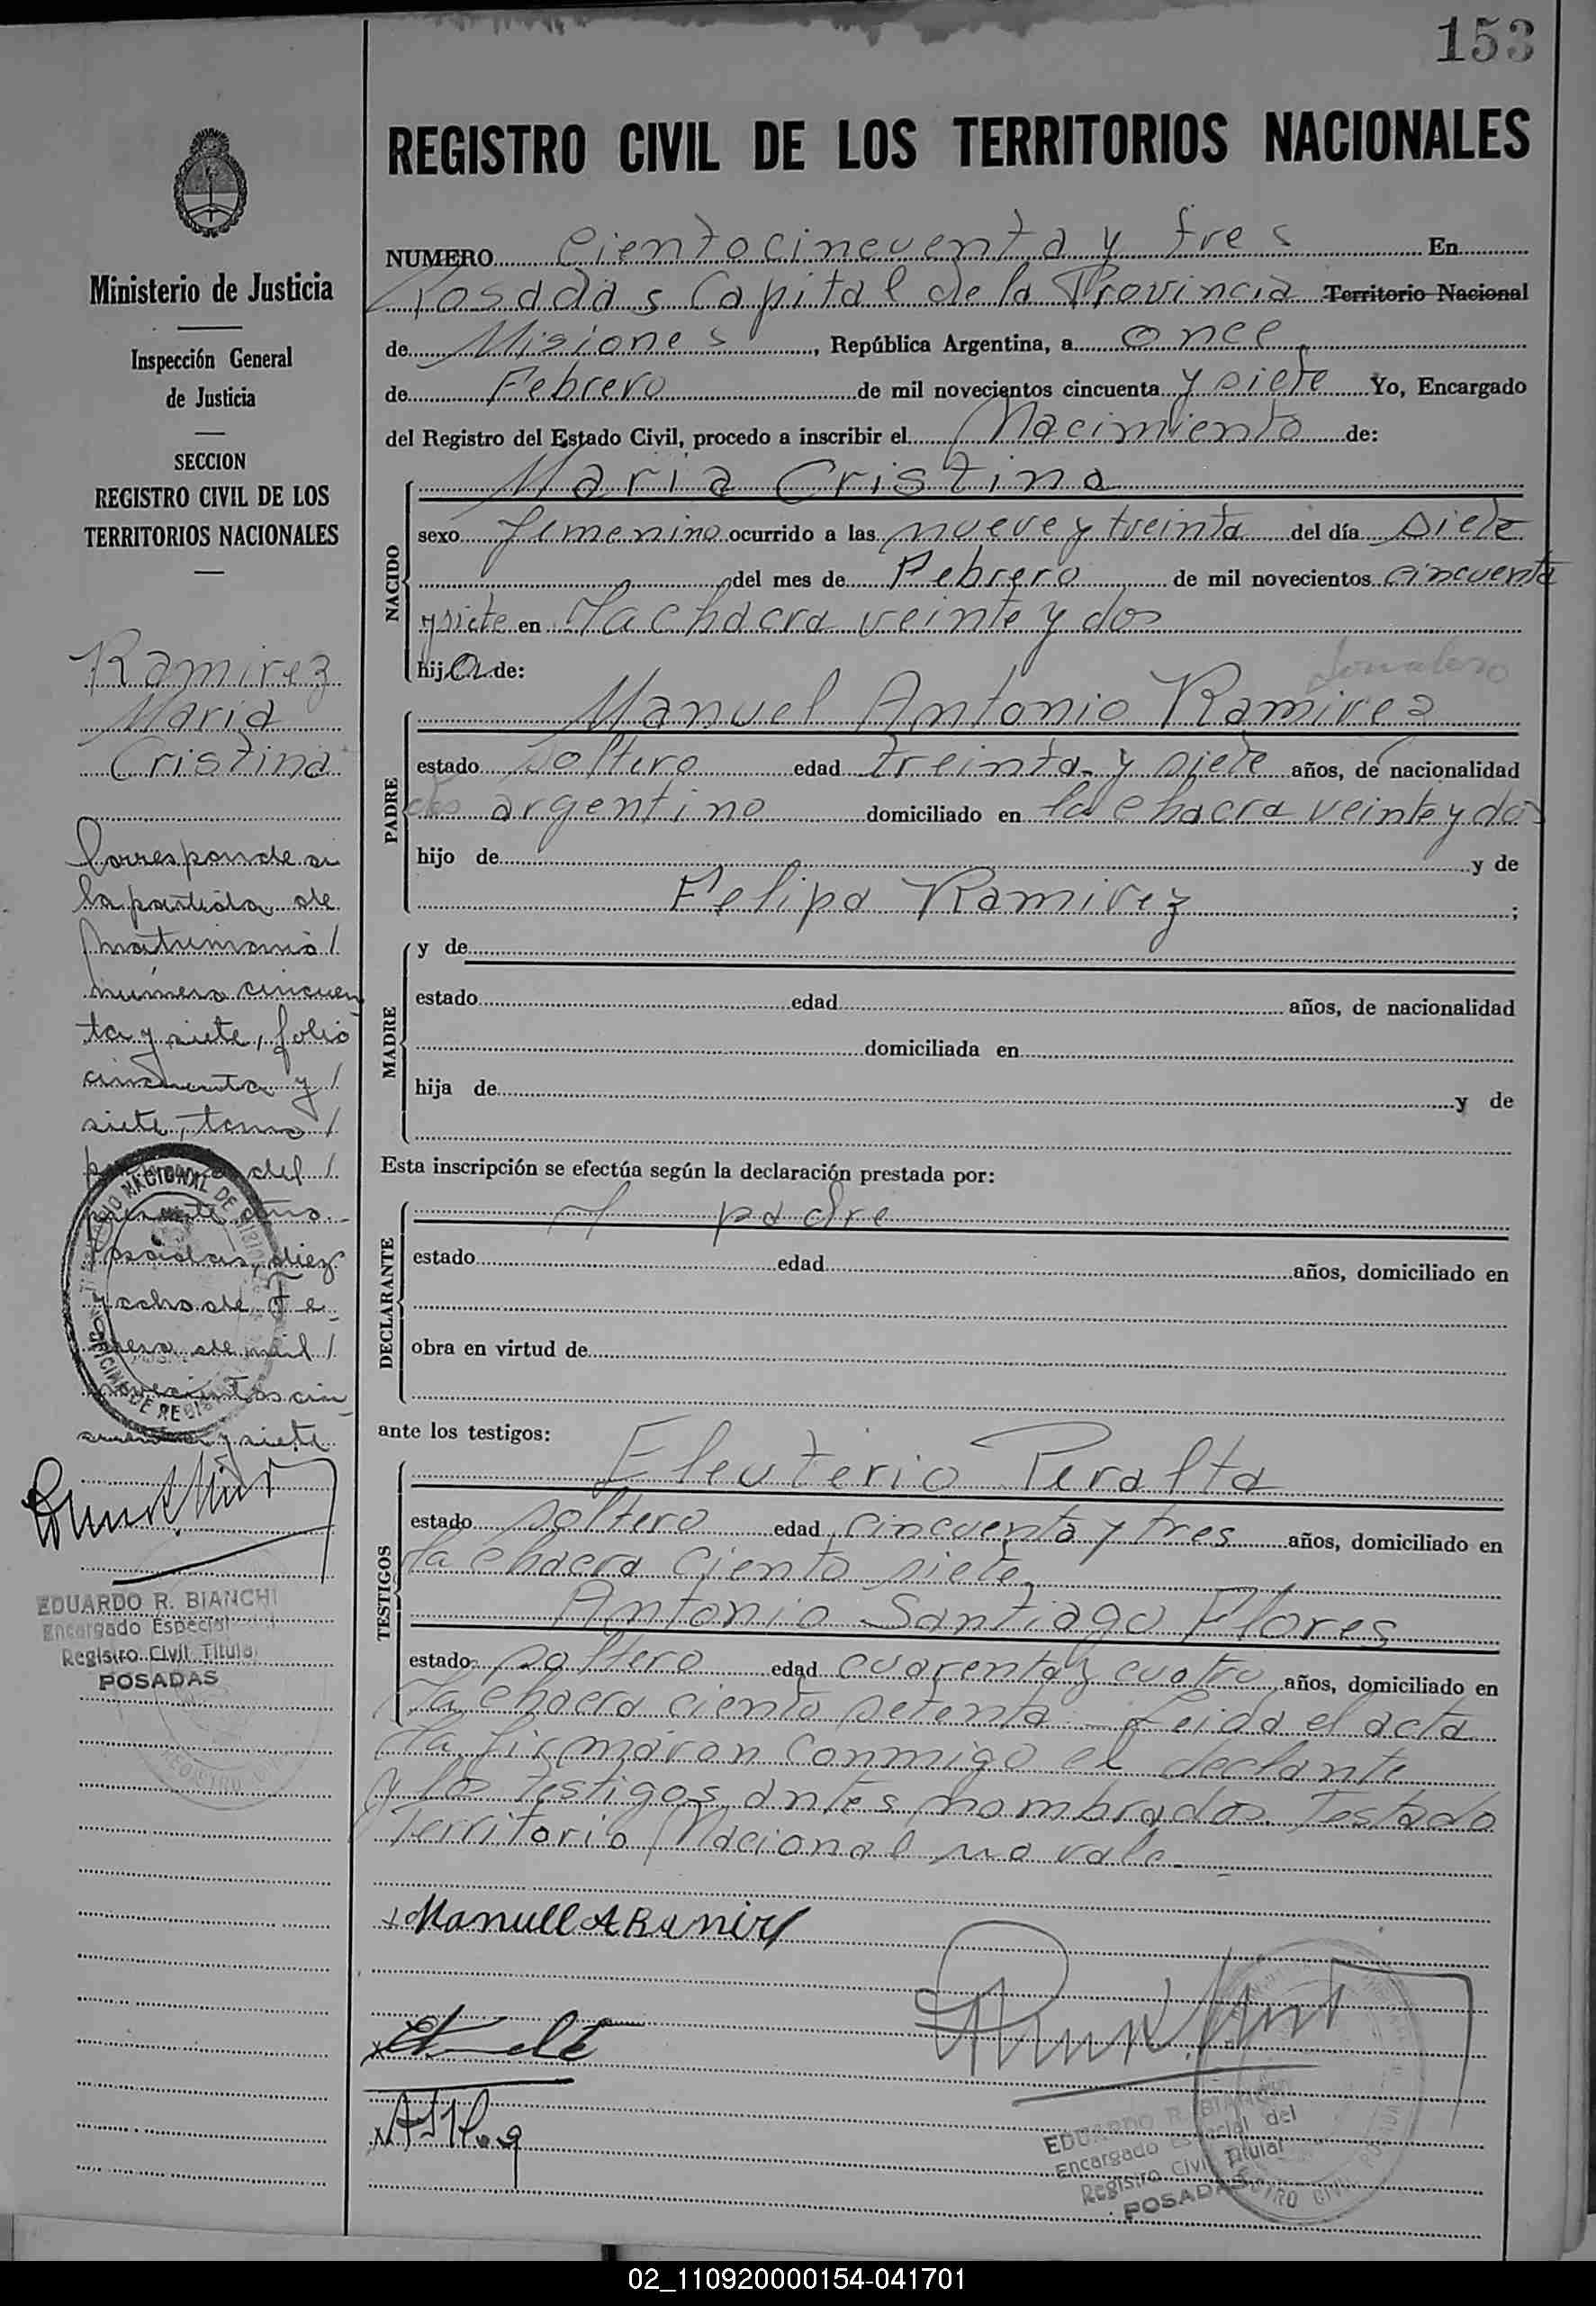 153
REGISTRO CIVIL DE LOS TERRITORIOS NACIONALES
Ministerio de Justicia
Inspección General
de Justicia
SECCION
REGISTRO CIVIL DE LOS
TERRITORIOS NACIONALES
Ramirez
Maria
Cristina
Corresponde a
la partida de
Matrimonio /
número cincuen
ta y siete, folio
cincuenta y /
siete, tomo /
del /
presente año.
Posadas, diez
y ocho de Fe_
brero de mil /
novecientos cin_
cuenta y siete
EDUARDO R. BIANCHI
Encargado Especial del
Registro Civil Titular
POSADAS
NUMERO Cientocincuenta y tres En
Posadas Capital de la Provincia Territorio Nacional
de Misiones, República Argentina, a once
de Febrero de mil novecientos cincuenta y siete Yo, Encargado
del Registro del Estado Civil, procedo a inscribir el Nacimiento de:
NACIDO
Maria Cristina
sexo femenino ocurrido a las nueve y treinta del día siete
del mes de Febrero de mil novecientos cincuenta
y siete en la chacra veinte y dos
hija de:
Jornalero
PADRE
Manuel Antonio Ramirez
estado soltero edad treinta y siete años, de nacionalidad
argentino domiciliado en la chacra veinte y dos
hijo de y de
Felipa Ramirez ;
MADRE
y de
estado edad años, de nacionalidad
domiciliada en
hija de y de
Esta inscripción se efectúa según la declaración prestada por:
DECLARANTE
padre
estado edad años, domiciliado en
obra en virtud de
ante los testigos:
TESTIGOS
Eleuterio Peralta
estado soltero edad cincuenta y tres años, domiciliado en
la chacra ciento siete.
Antonio Santiago Flores
estado soltero edad cuarenta y cuatro años, domiciliado en
la chacra ciento setenta - Leida el acta
la firmaron conmigo el declante
y los testigos antes nombrados. Testado
Territorio Nacional no vale.-
Manuel A Ramirez
EDUARDO R. BIANCHI
Encargado Especial del
Registro Civil Titular
POSADAS
02_110920000154-041701